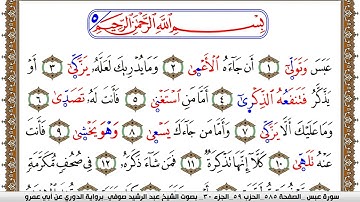 بِسْمِ اللَّهِ الرَّحْمَٰنِ الرَّحِيمِ ٥
عَبَسَ وَتَوَلَّىٰ ١ أَن جَاءَهُ الْأَعْمَىٰ ٢ وَمَا يُدْرِيكَ لَعَلَّهُ يَزَّكَّىٰ ٣ أَوْ
يَذَّكَّرُ فَتَنفَعُهُ الذِّكْرَىٰ ٤ أَمَّا مَنِ اسْتَغْنَىٰ ٥ فَأَنتَ لَهُ تَصَّدَّىٰ ٦
وَمَا عَلَيْكَ أَلَّا يَزَّكَّىٰ ٧ وَأَمَّا مَن جَاءَكَ يَسْعَىٰ ٨ وَهْوَ يَخْشَىٰ ٩ فَأَنتَ
عَنْهُ تَلَهَّىٰ ١٠ كَلَّا إِنَّهَا تَذْكِرَةٌ ١١ فَمَن شَاءَ ذَكَرَهُ ١٢ فِي صُحُفٍ مُّكَرَّمَةٍ
سورة عبس . الصفحة ٥٨٥ الحزب ٥٩ . الجزء ٣٠ . بصوت الشيخ عبد الرشيد صوفي برواية الدوري عن أبي عمرو